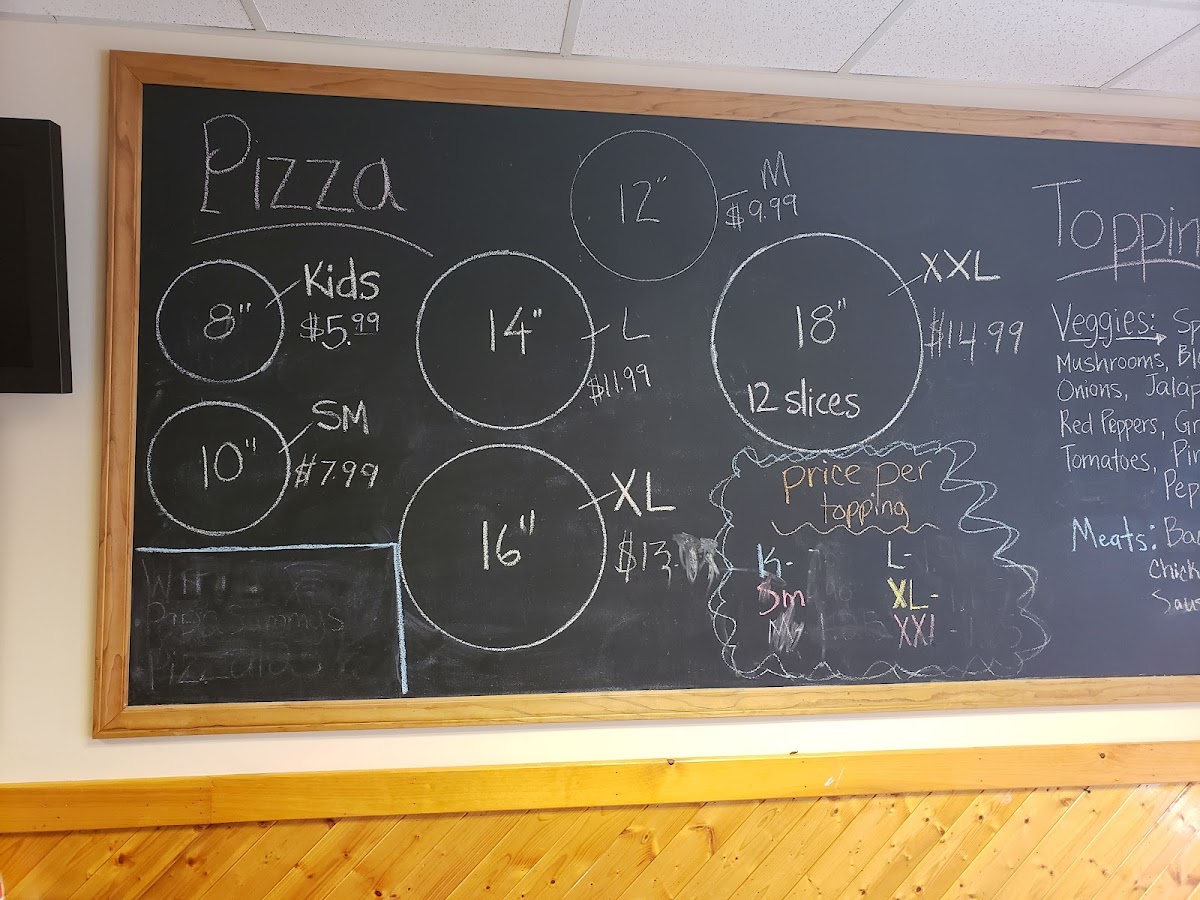 Pizza
8" Kids
$5.99
10" SM
$7.99
12" M
$9.99
14" L
$11.99
16" XL
$13.
18" XXL
$14.99
12 slices
price per
topping
K-
Sm
M
L-
XL-
XXL-
Toppin
Veggies: Sp
Mushrooms, Bl
Onions, Jalap
Red Peppers, Gr
Tomatoes, Pin
Pep
Meats: Bac
Chick
Saus